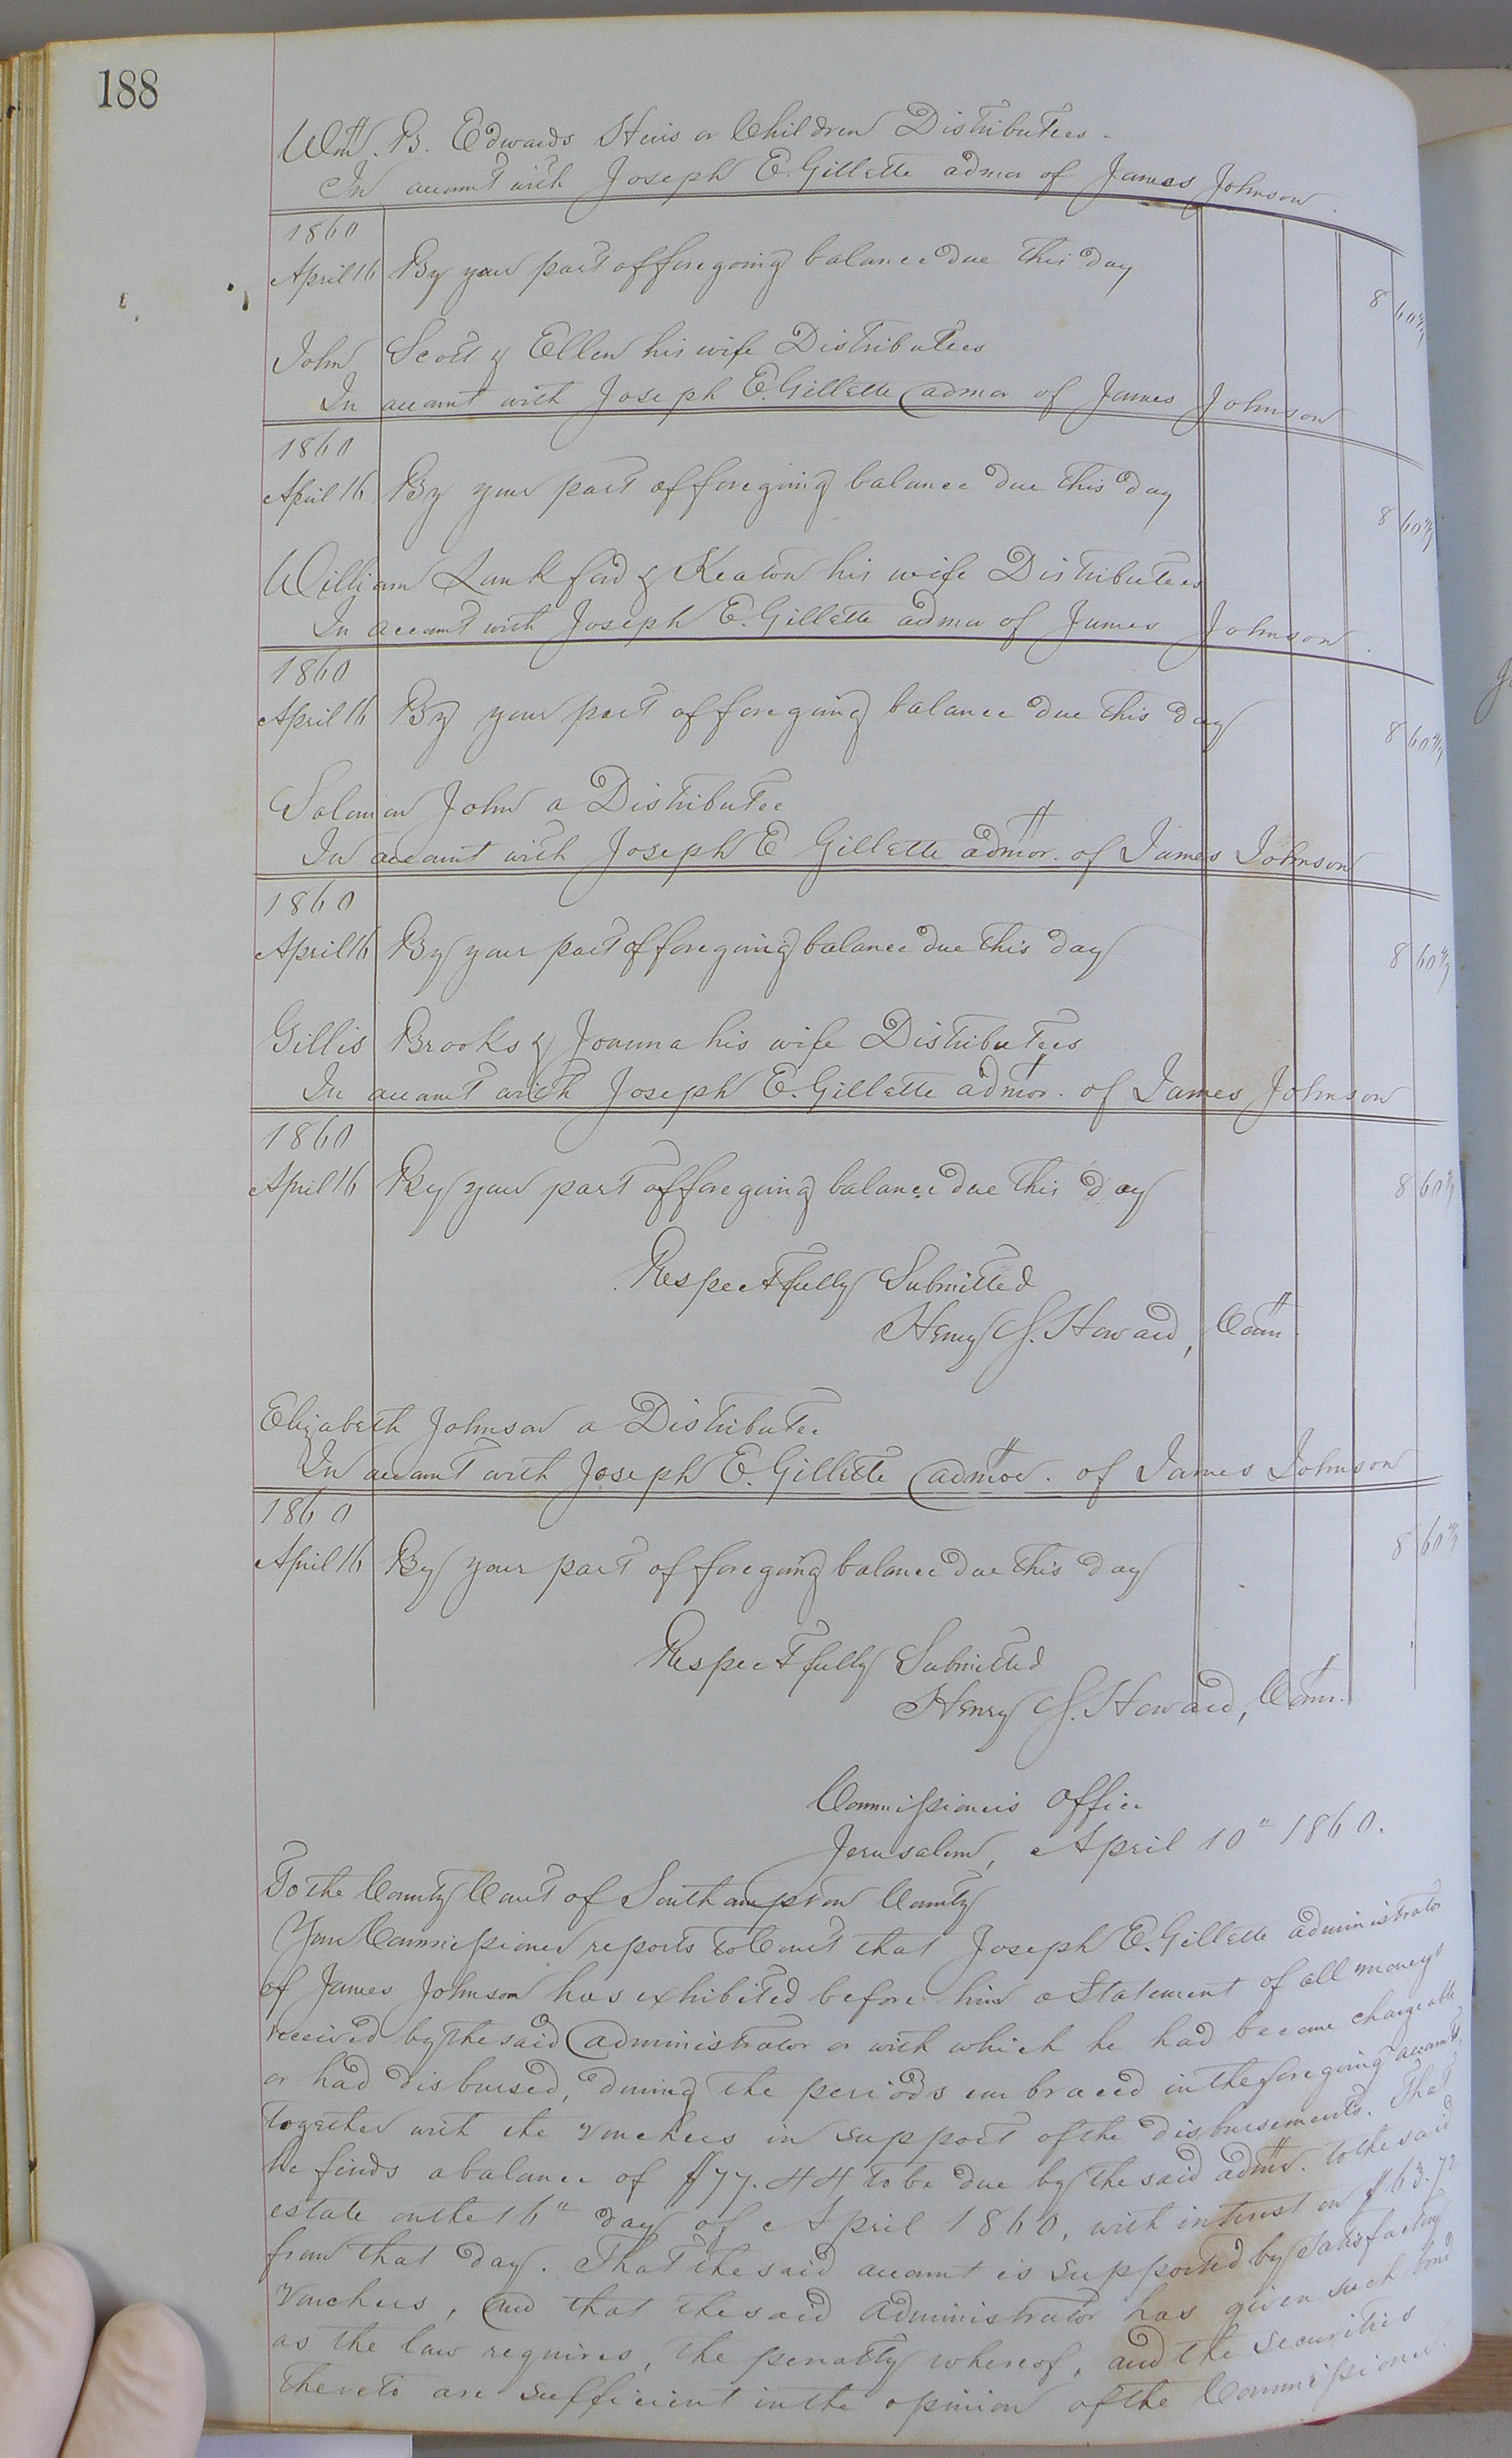 188
Wm. B. Edwards Heirs or Children Distributees.
In account with Joseph E. Gillette admor of James Johnson.
1860
April 16 By your part of foregoing balance due this day 8 60 4/9
John Scott & Ellen his wife Distributees
In account with Joseph E. Gillette admor of James Johnson
1860
April 16 By your part of foregoing balance due this day 8 60 4/9
William Lankford & Keaton his wife Distributees
In account with Joseph E. Gillette admor of James Johnson.
1860
April 16 By your part of foregoing balance due this day 8 60 4/9
Solomon John a Distributee
In account with Joseph E Gillette admor. of James Johnson
1860
April 16 By your part of foregoing balance due this day 8 60 4/9
Gillis Brooks & Joanna his wife Distributees
In account with Joseph E. Gillette admor. of James Johnson
1860
April 16 By your part of foregoing balance due this day 8 60 4/9
Respectfully Submitted
Henry S. Howard, Com.
Elizabeth Johnson a Distributee
In account with Joseph E. Gillette admor. of James Johnson
1860
April 16 By your part of foregoing balance due this day 8 60 4/9
Respectfully Submitted
Henry S. Howard, Comr.
Commissioners Office
Jerusalem, April 10" 1860.
To the County Court of Southampton County
Your Commissioner reports to Court that Joseph E. Gillette administrator
of James Johnson has exhibited before him a Statement of all moneys
received by the said administrator or with which he had become chargeable
or had disbursed, during the periods embraced in the foregoing accounts,
together with the vouchers in support of the disbursements. That
he finds a balance of $77.44 to be due by the said admr. to the said
estate on the 16" day of April 1860, with interest on $63.72
from that day. That the said account is supported by satisfactory
vouchers, and that the said administrator has given such bond
as the law requires, the penalty whereof, and the securities
thereto are sufficient in the opinion of the Commissioner.